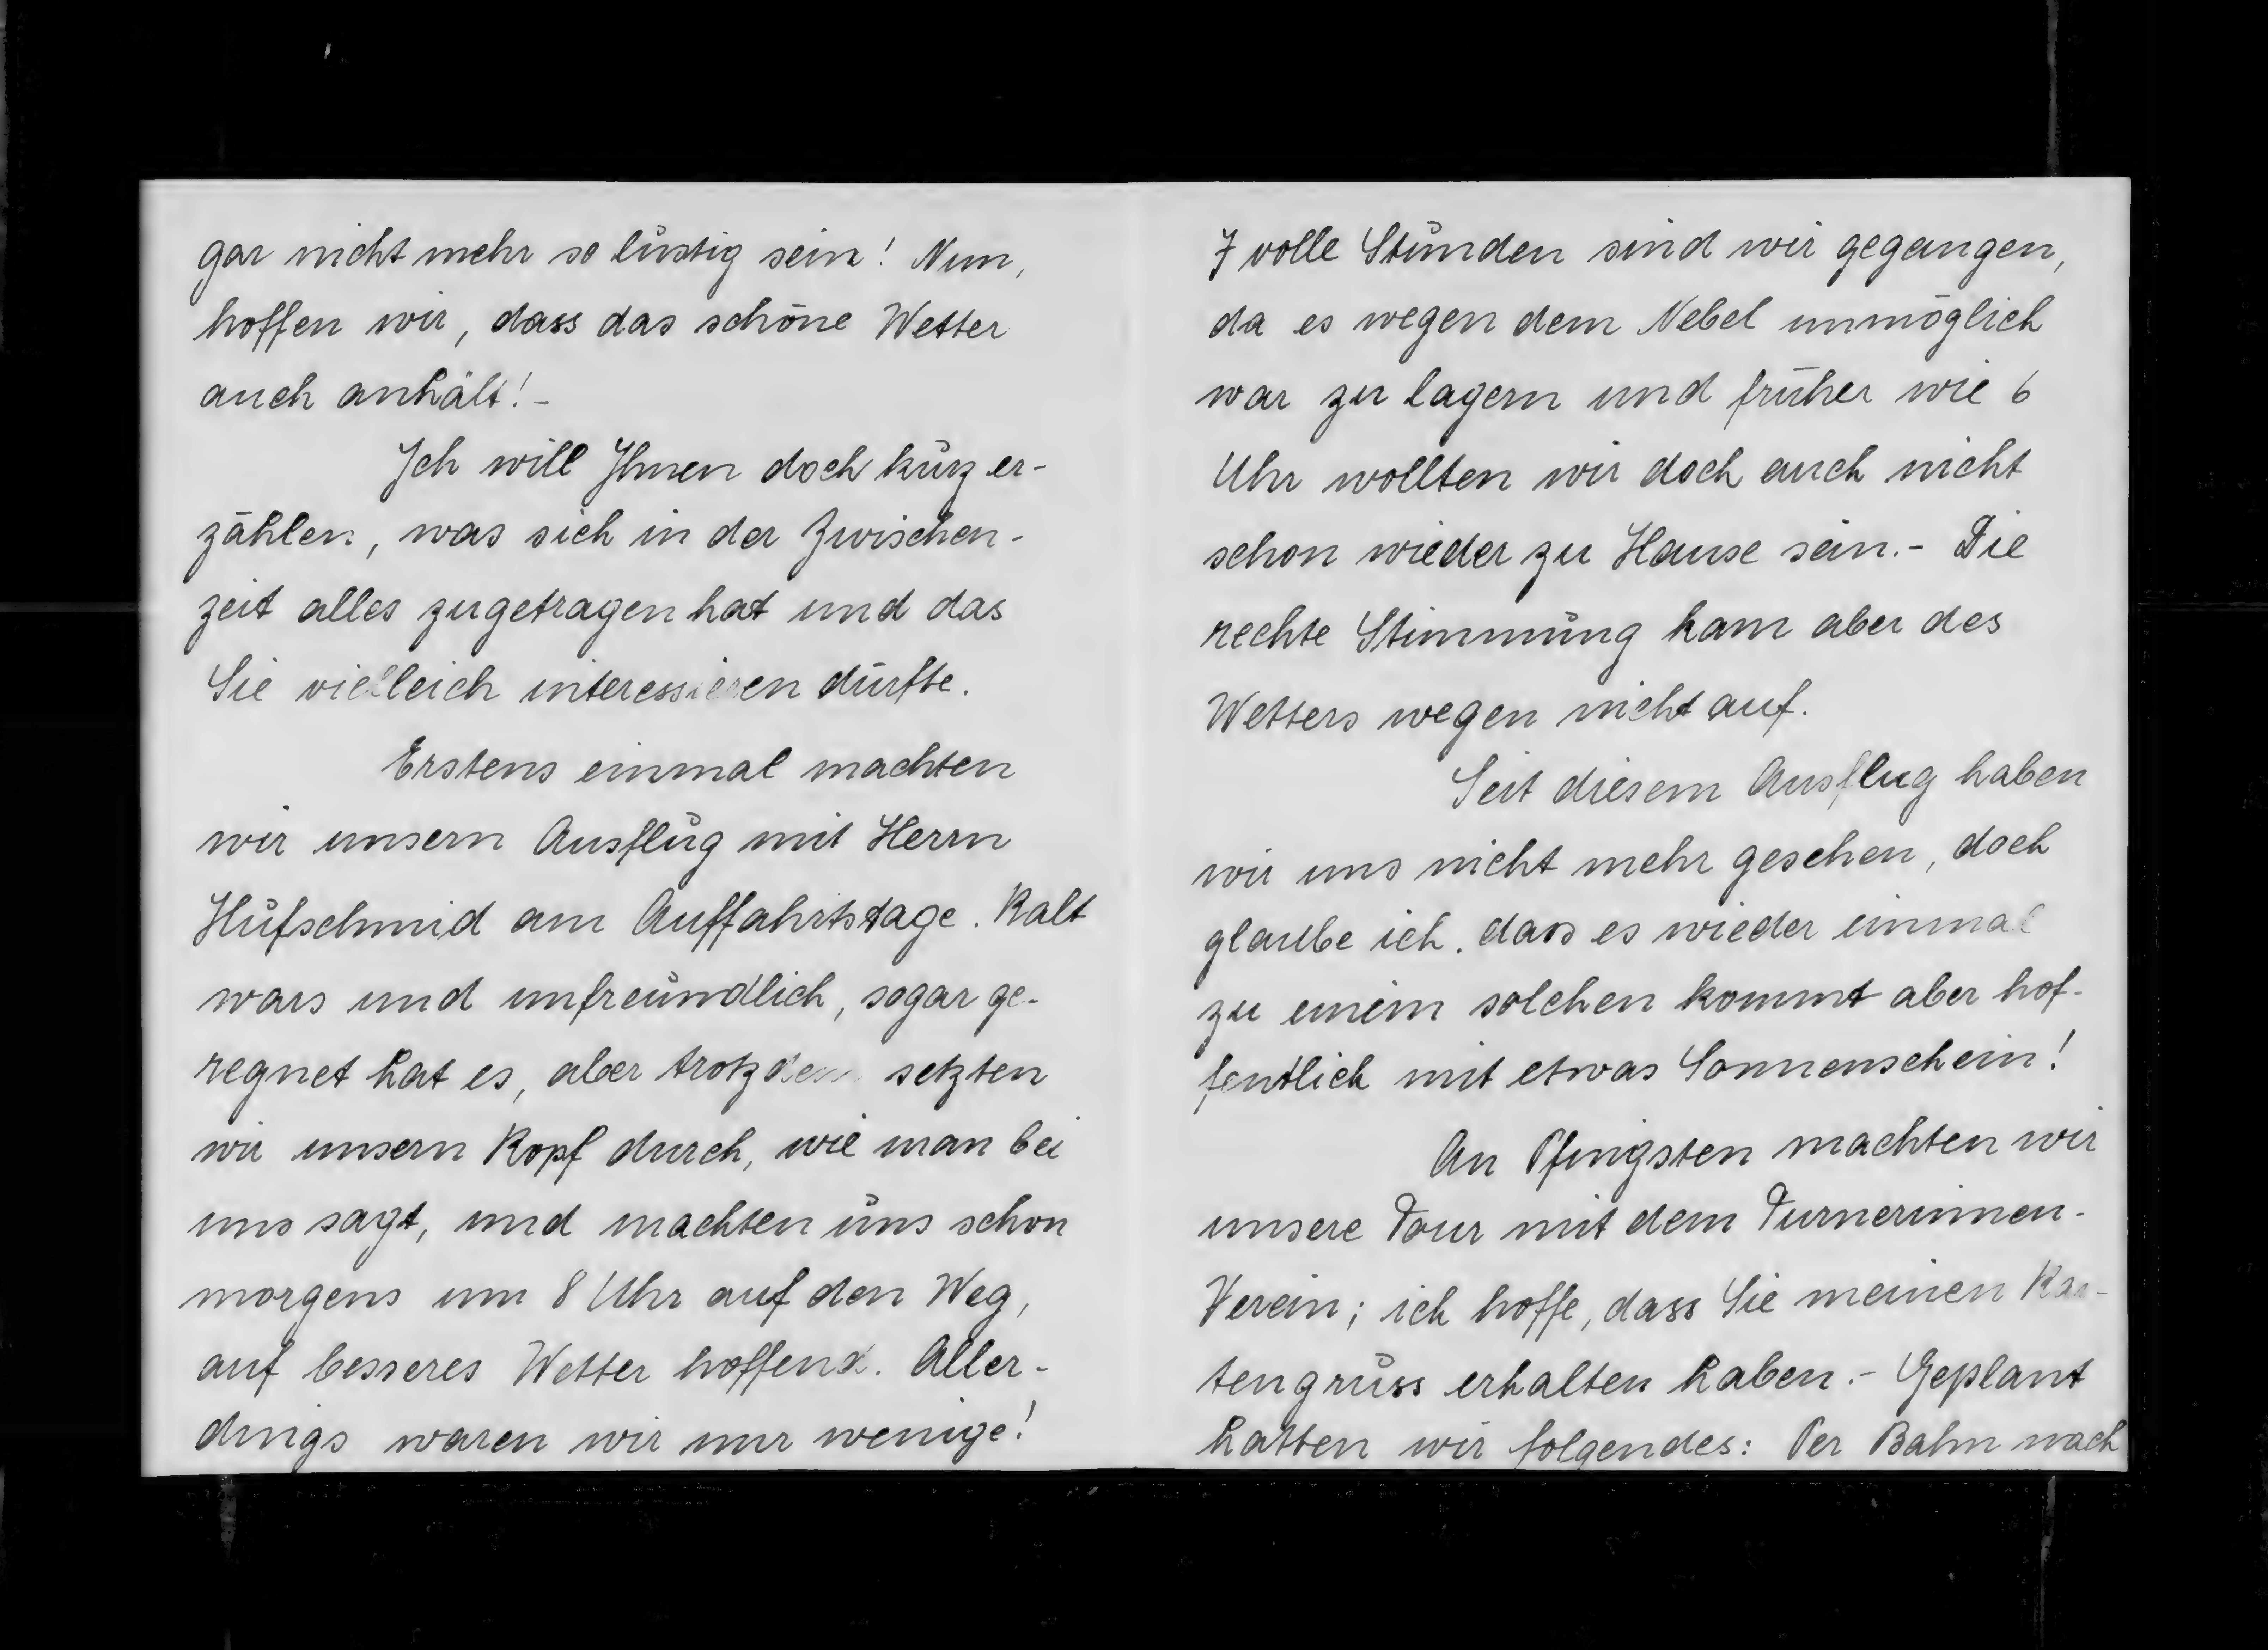 gar nicht mehr so lustig sein! Nun,
hoffen wir, dass das schöne Wetter
auch anhält! -
Ich will Ihnen doch kurz er-
zählen, was sich in der Zwischen-
zeit alles zugetragen hat und das
Sie vielleich interessieren dürfte.
Erstens einmal machten
wir unsern Ausflug mit Herrn
Hufschmid am Auffahrtstage. Kalt
wars und unfreundlich, sogar ge-
regnet hat es, aber trotzdem setzten
wir unsern Kopf durch, wie man bei
uns sagt, und machten uns schon
morgens um 8 Uhr auf den Weg,
auf besseres Wetter hoffend. Aller-
dings waren wir nur wenige!
7 volle Stunden sind wir gegangen,
da es wegen dem Nebel unmöglich
war zu lagern und früher wie 6
Uhr wollten wir doch auch nicht
schon wieder zu Hause sein. - Die
rechte Stimmung kam aber des
Wetters wegen nicht auf.
Seit diesem Ausflug haben
wir uns nicht mehr gesehen, doch
glaube ich, dass es wieder einmal
zu einem solchen kommt aber hof-
fentlich mit etwas Sonnenschein!
An Pfingsten machten wir
unsere Tour mit dem Turnerinnen-
Verein; ich hoffe, dass Sie meinen Kar-
tengruss erhalten haben. - Geplant
hatten wir folgendes: Per Bahn nach